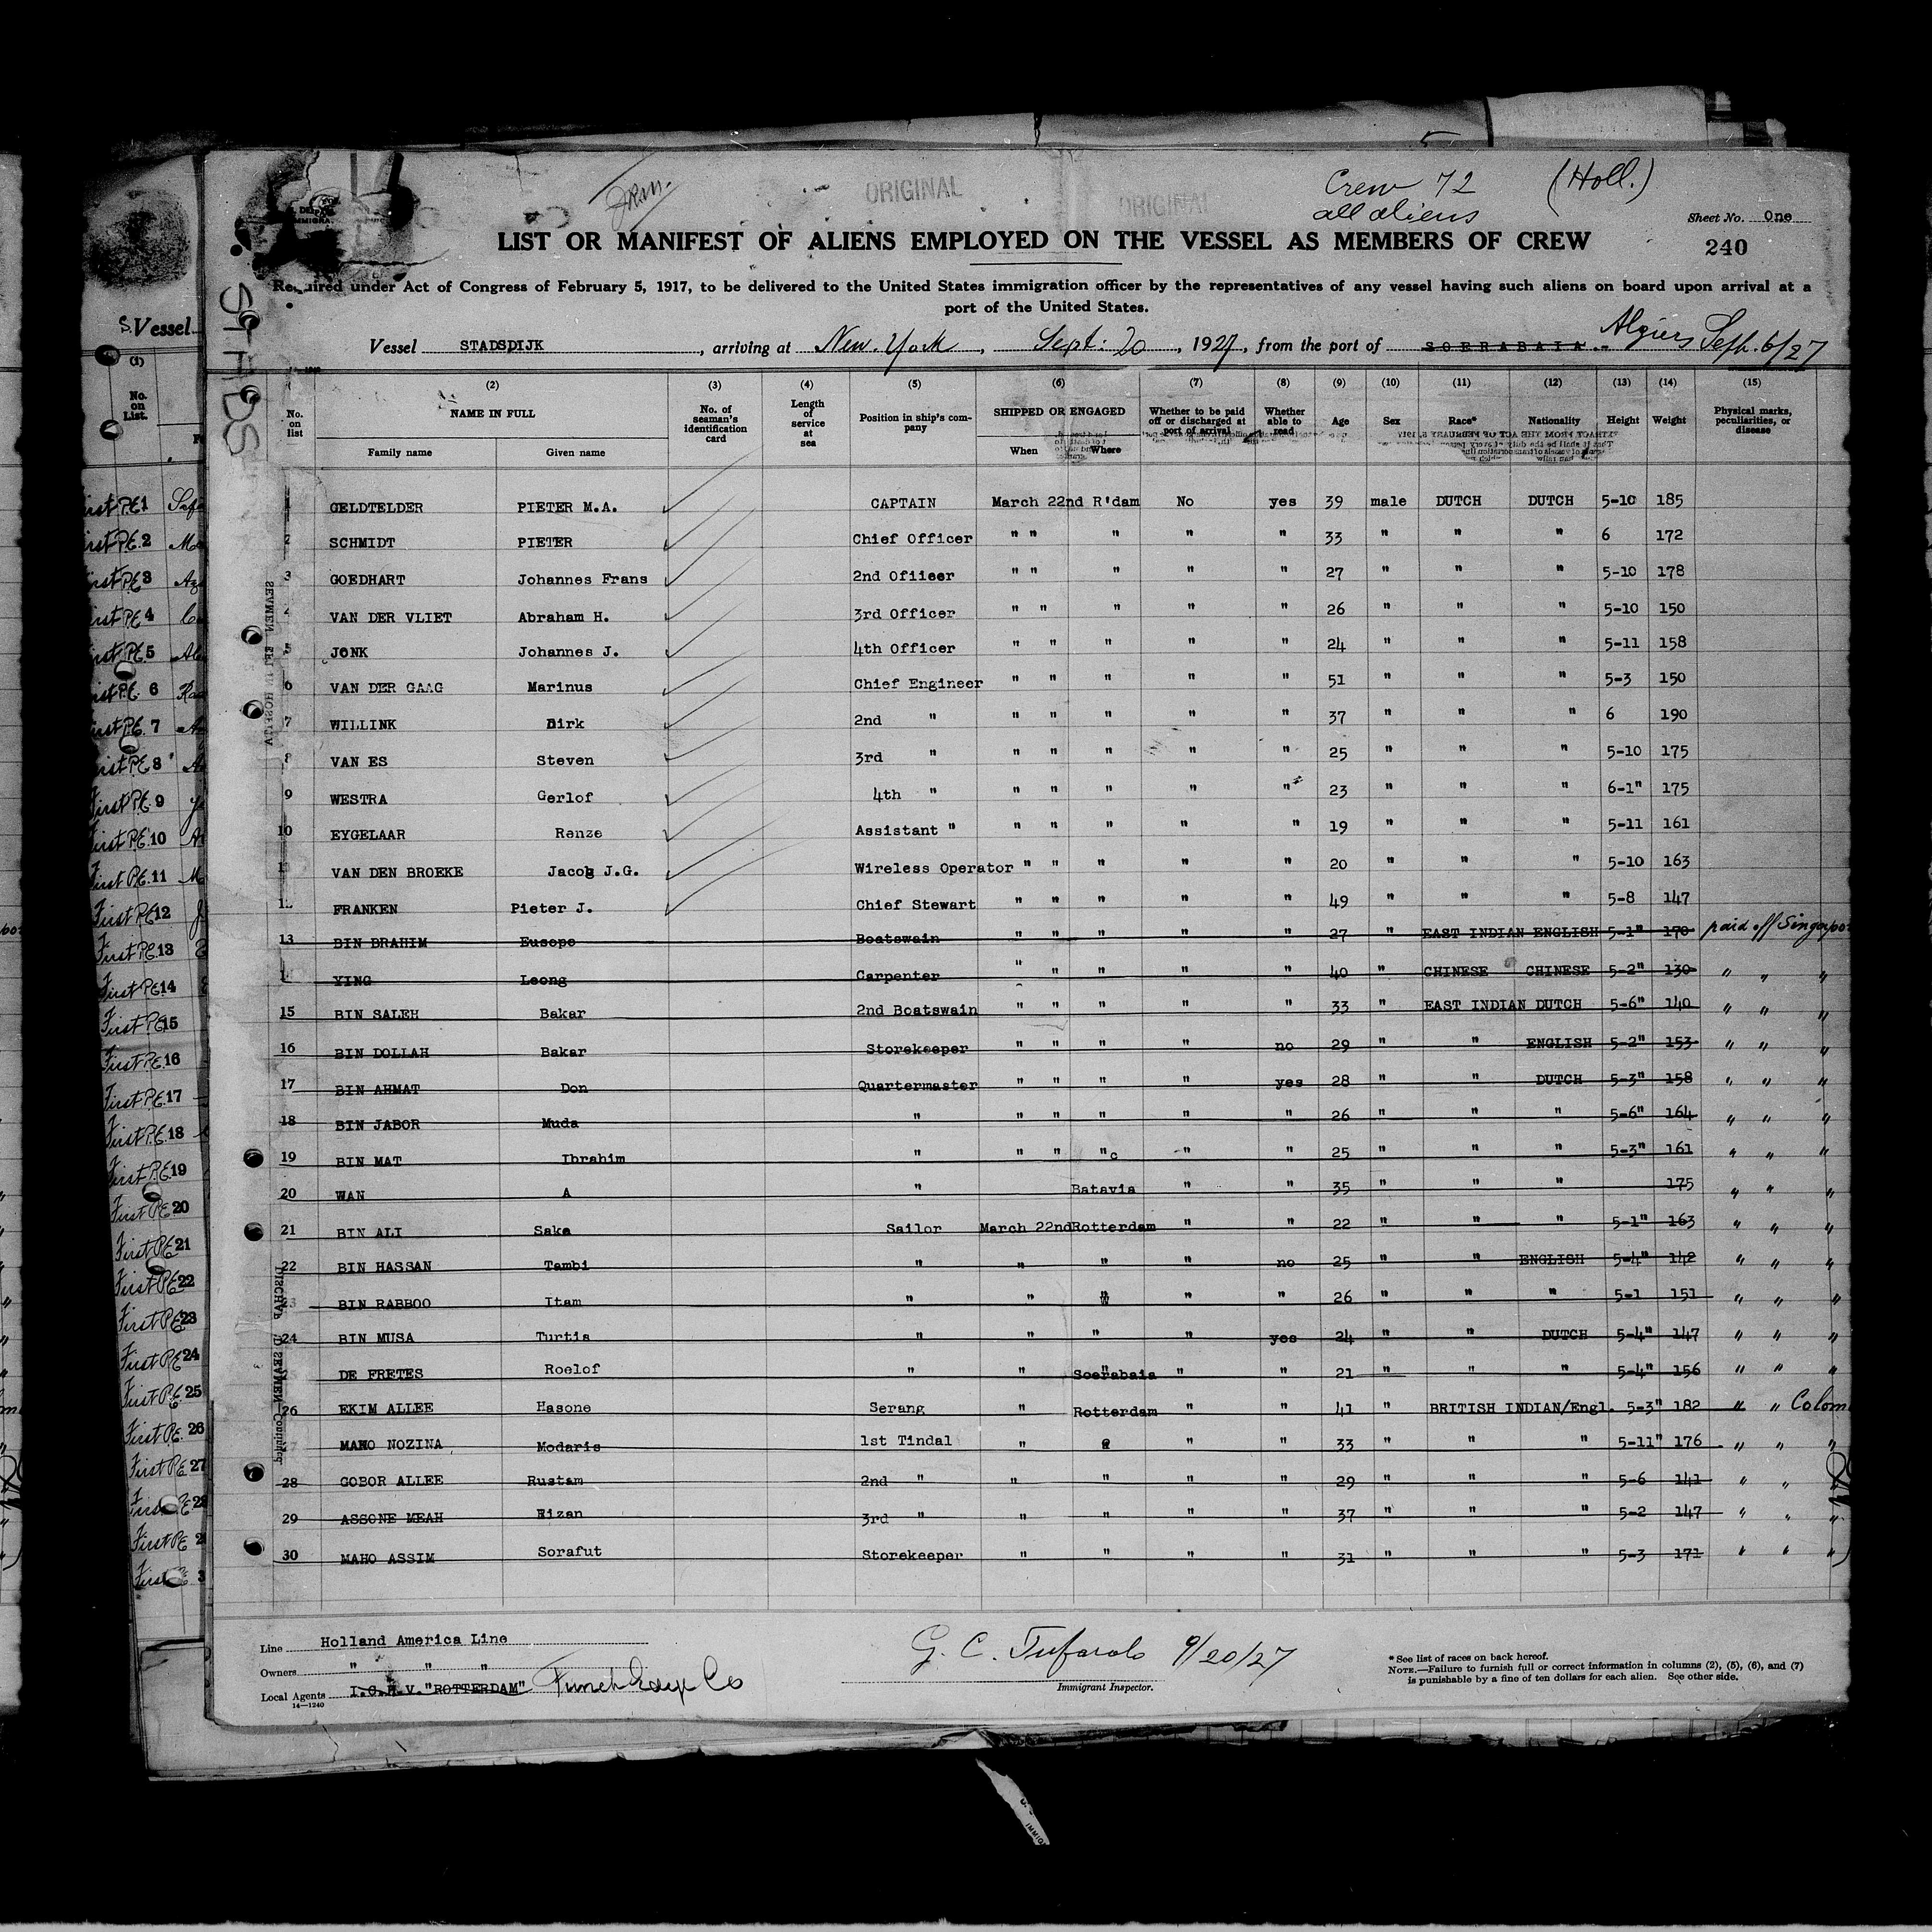 Crew 72 (Holl.)
all aliens
ORIGINAL
ORIGINAL
Sheet No. One
LIST OR MANIFEST OF ALIENS EMPLOYED ON THE VESSEL AS MEMBERS OF CREW
240
Required under Act of Congress of February 5, 1917, to be delivered to the United States immigration officer by the representatives of any vessel having such aliens on board upon arrival at a
port of the United States.
Vessel STADSDIJK, arriving at New York, Sept: 20, 1927, from the port of SOERABAIA.- Algiers Sept. 6/27
(2) (3) (4) (5) (6) (7) (8) (9) (10) (11) (12) (13) (14) (15)
No. on list NAME IN FULL Family name Given name No. of seaman's identification card Length of service at sea Position in ship's company SHIPPED OR ENGAGED When Where Whether to be paid off or discharged at port of arrival Whether able to read Age Sex Race* Nationality Height Weight Physical marks, peculiarities, or disease
1 GELDTELDER PIETER M.A. CAPTAIN March 22nd R'dam No yes 39 male DUTCH DUTCH 5-10 185
2 SCHMIDT PIETER Chief Officer " " " " " 33 " " " 6 172
3 GOEDHART Johannes Frans 2nd Ofiieer " " " " " 27 " " " 5-10 178
4 VAN DER VLIET Abraham H. 3rd Officer " " " " " 26 " " " 5-10 150
5 JONK Johannes J. 4th Officer " " " " " 24 " " " 5-11 158
6 VAN DER GAAG Marinus Chief Engineer " " " " " 51 " " " 5-3 150
7 WILLINK Dirk 2nd " " " " " " 37 " " " 6 190
8 VAN ES Steven 3rd " " " " " " 25 " " " 5-10 175
9 WESTRA Gerlof 4th " " " " " " 23 " " " 6-1" 175
10 EYGELAAR Renze Assistant " " " " " " 19 " " " 5-11 161
11 VAN DEN BROEKE Jacob J.G. Wireless Operator " " " " " 20 " " " 5-10 163
12 FRANKEN Pieter J. Chief Stewart " " " " " 49 " " " 5-8 147
13 BIN BRAHIM Eusope Boatswain " " " " " 27 " EAST INDIAN ENGLISH 5-1" 170 paid off Singapo
14 YING Leong Carpenter " " " " " 40 " CHINESE CHINESE 5-2" 130 " " "
15 BIN SALEH Bakar 2nd Boatswain " " " " " 33 " EAST INDIAN DUTCH 5-6" 140 " " "
16 BIN DOLLAH Bakar Storekeeper " " " " no 29 " " ENGLISH 5-2" 153 " " "
17 BIN AHMAT Don Quartermaster " " " " yes 28 " " DUTCH 5-3" 158 " " "
18 BIN JABOR Muda " " " " " " 26 " " " 5-6" 164 " " "
19 BIN MAT Ibrahim " " " " " " 25 " " " 5-3" 161 " " "
20 WAN A " Batavia " " 35 " " " 175 " " "
21 BIN ALI Saka Sailor March 22nd Rotterdam " " 22 " " " 5-1" 163 " " "
22 BIN HASSAN Tambi " " " " no 25 " " ENGLISH 5-4" 142 " " "
23 BIN RABBOO Itam " " " " " 26 " " " 5-1 151 " " "
24 BIN MUSA Turtia " " " " yes 24 " " DUTCH 5-4" 147 " " "
DE FRETES Roelof " " Soerabaia " " 21 " " " 5-4" 156 " " "
26 EKIM ALLEE Hasone Serang " Rotterdam " " 41 " BRITISH INDIAN/Engl. 5-3" 182 " " Colom
MAHO NOZINA Modaris 1st Tindal " " " " 33 " " " 5-11" 176 " " "
28 GOBOR ALLEE Rustam 2nd " " " " " 29 " " " 5-6 141 " "
29 ASSONE MEAH Eizan 3rd " " " " " 37 " " " 5-2 147 " " "
30 MAHO ASSIM Sorafut Storekeeper " " " " 31 " " " 5-3 171 " " "
Line Holland America Line
Owners " " "
Local Agents "ROTTERDAM" Funch Edye Co
14—1240
G. C. Tufarolo 9/20/27
Immigrant Inspector.
* See list of races on back hereof.
NOTE.—Failure to furnish full or correct information in columns (2), (5), (6), and (7)
is punishable by a fine of ten dollars for each alien. See other side.
S. Vessel
(1)
No. on List.